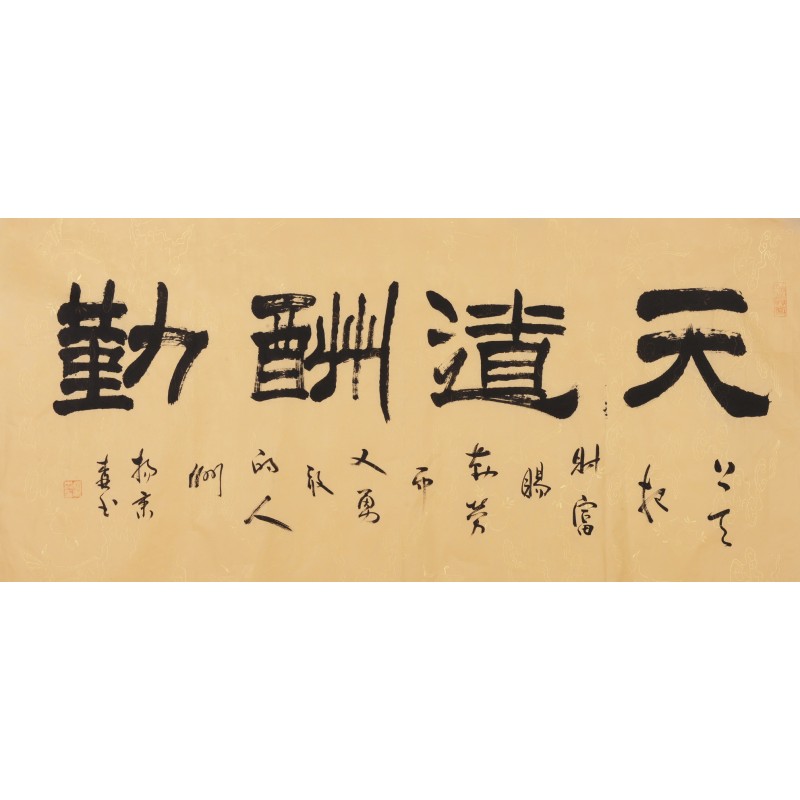 天道酬勤
上天
把
财富
賜
勤劳
而
又勇
敢
的人
们
杨京
春书